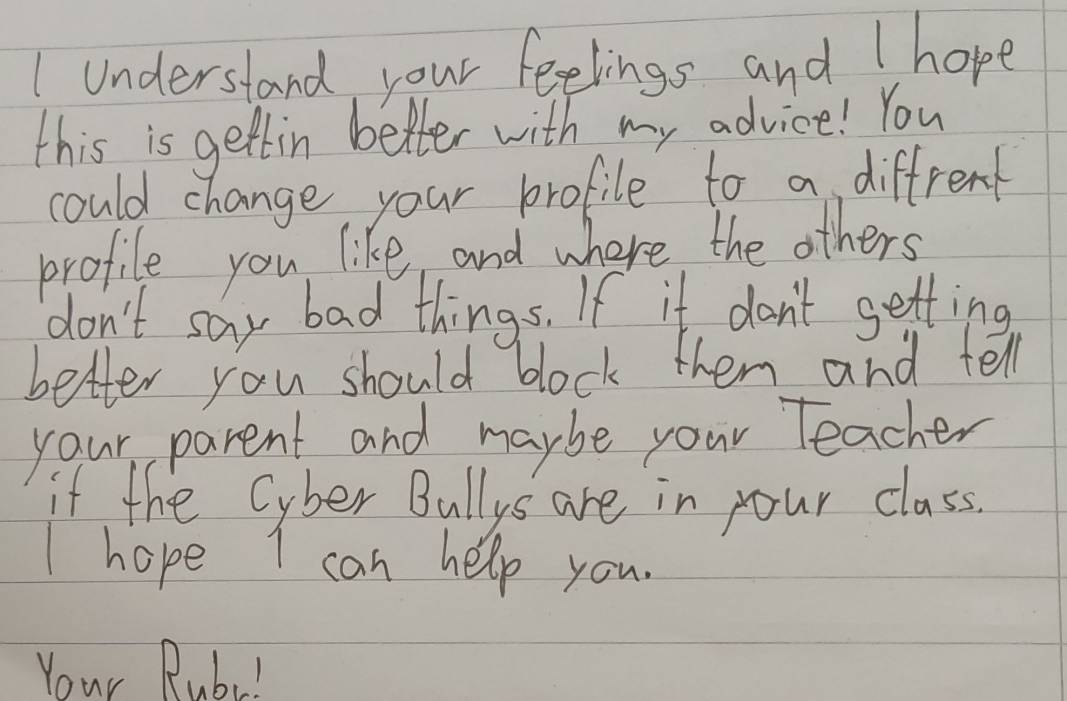 I understand your feelings and I hope
this is gettin better with my advice! You
could change your profile to a diffrent
profile you like, and where the others
don't say bad things. If it don't getting
better you should block them and tell
your parent and maybe your Teacher
if the Cyber Bullys are in your class.
I hope I can help you.
Your Ruby!